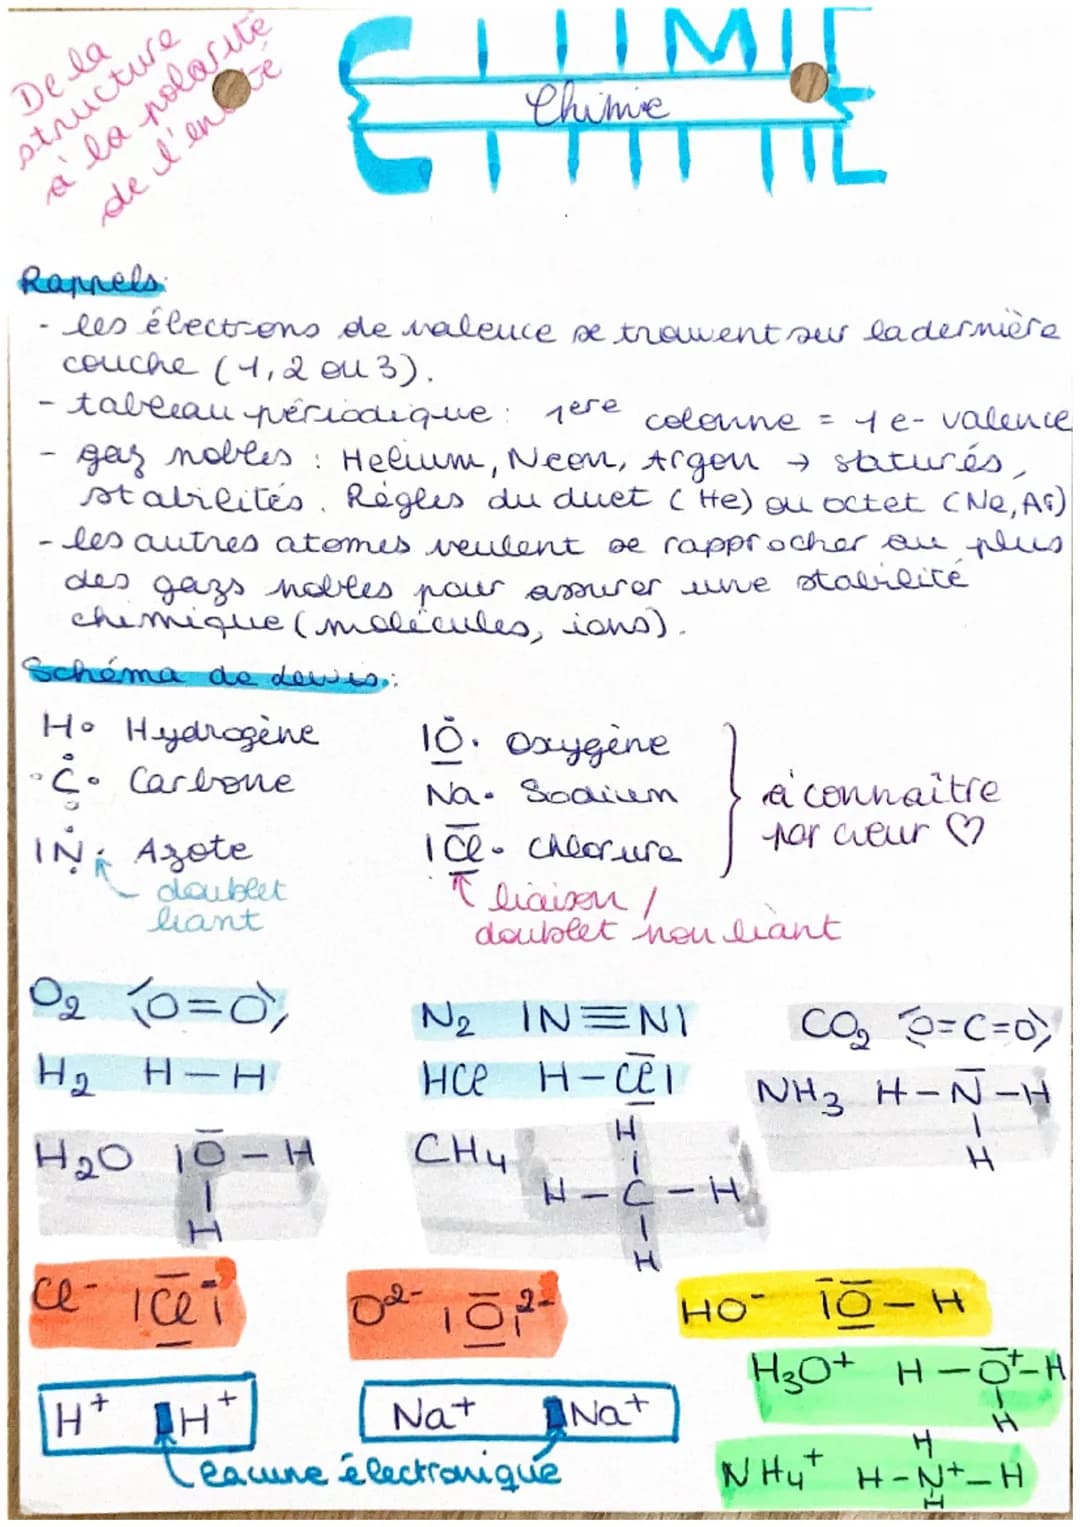 De la
structure
à la polarité
de l'entité
CHIMIE
Chimie
Rappels:
- les électrons de valence se trouvent sur la dernière
couche (1, 2 ou 3).
- tableau périodique : 1ere colonne = 1 e- valence
- gaz nobles : Helium, Neon, Argon → saturés,
stabilités. Règles du duet (He) ou octet (Ne, Ar)
- les autres atomes veulent se rapprocher au plus
des gazs nobles pour assurer une stabilité
chimique (molécules, ions).
Schéma de Lewis :
H• Hydrogène
C Carbone
IN Azote
doublet
liant
IO• Oxygène
Na• Sodium
ICl• Chlorure
à connaître
par cœur ♡
liaison /
doublet non liant
O₂ O=O
N₂ IN≡NI
CO₂ O=C=O
H₂ H-H
HCl H-ClI
NH₃ H-N-H
H
H₂O IO-H
H
CH₄
H
H-C-H
H
Cl⁻ ICl⁻
O²⁻ IO²⁻
HO⁻ IO-H
H₃O⁺ H-O⁺-H
H
H⁺ H⁺
Na⁺ Na⁺
lacune électronique
NH₄⁺
H
H-N⁺-H
H